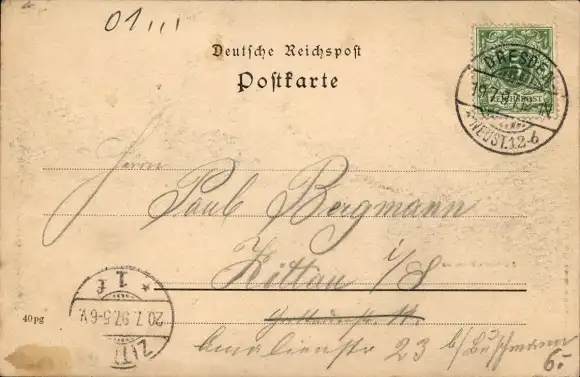 01,,,
Deutsche Reichspost
Postkarte
DRESDEN
REICHSPOST
NEUST. 12-6
Herrn
Paul Bergmann
Zittau i/S
Amalienstr 23 b/ Buschmann
20.7.97.5-6V.
* 1 f
ZITT
40pg
6.-